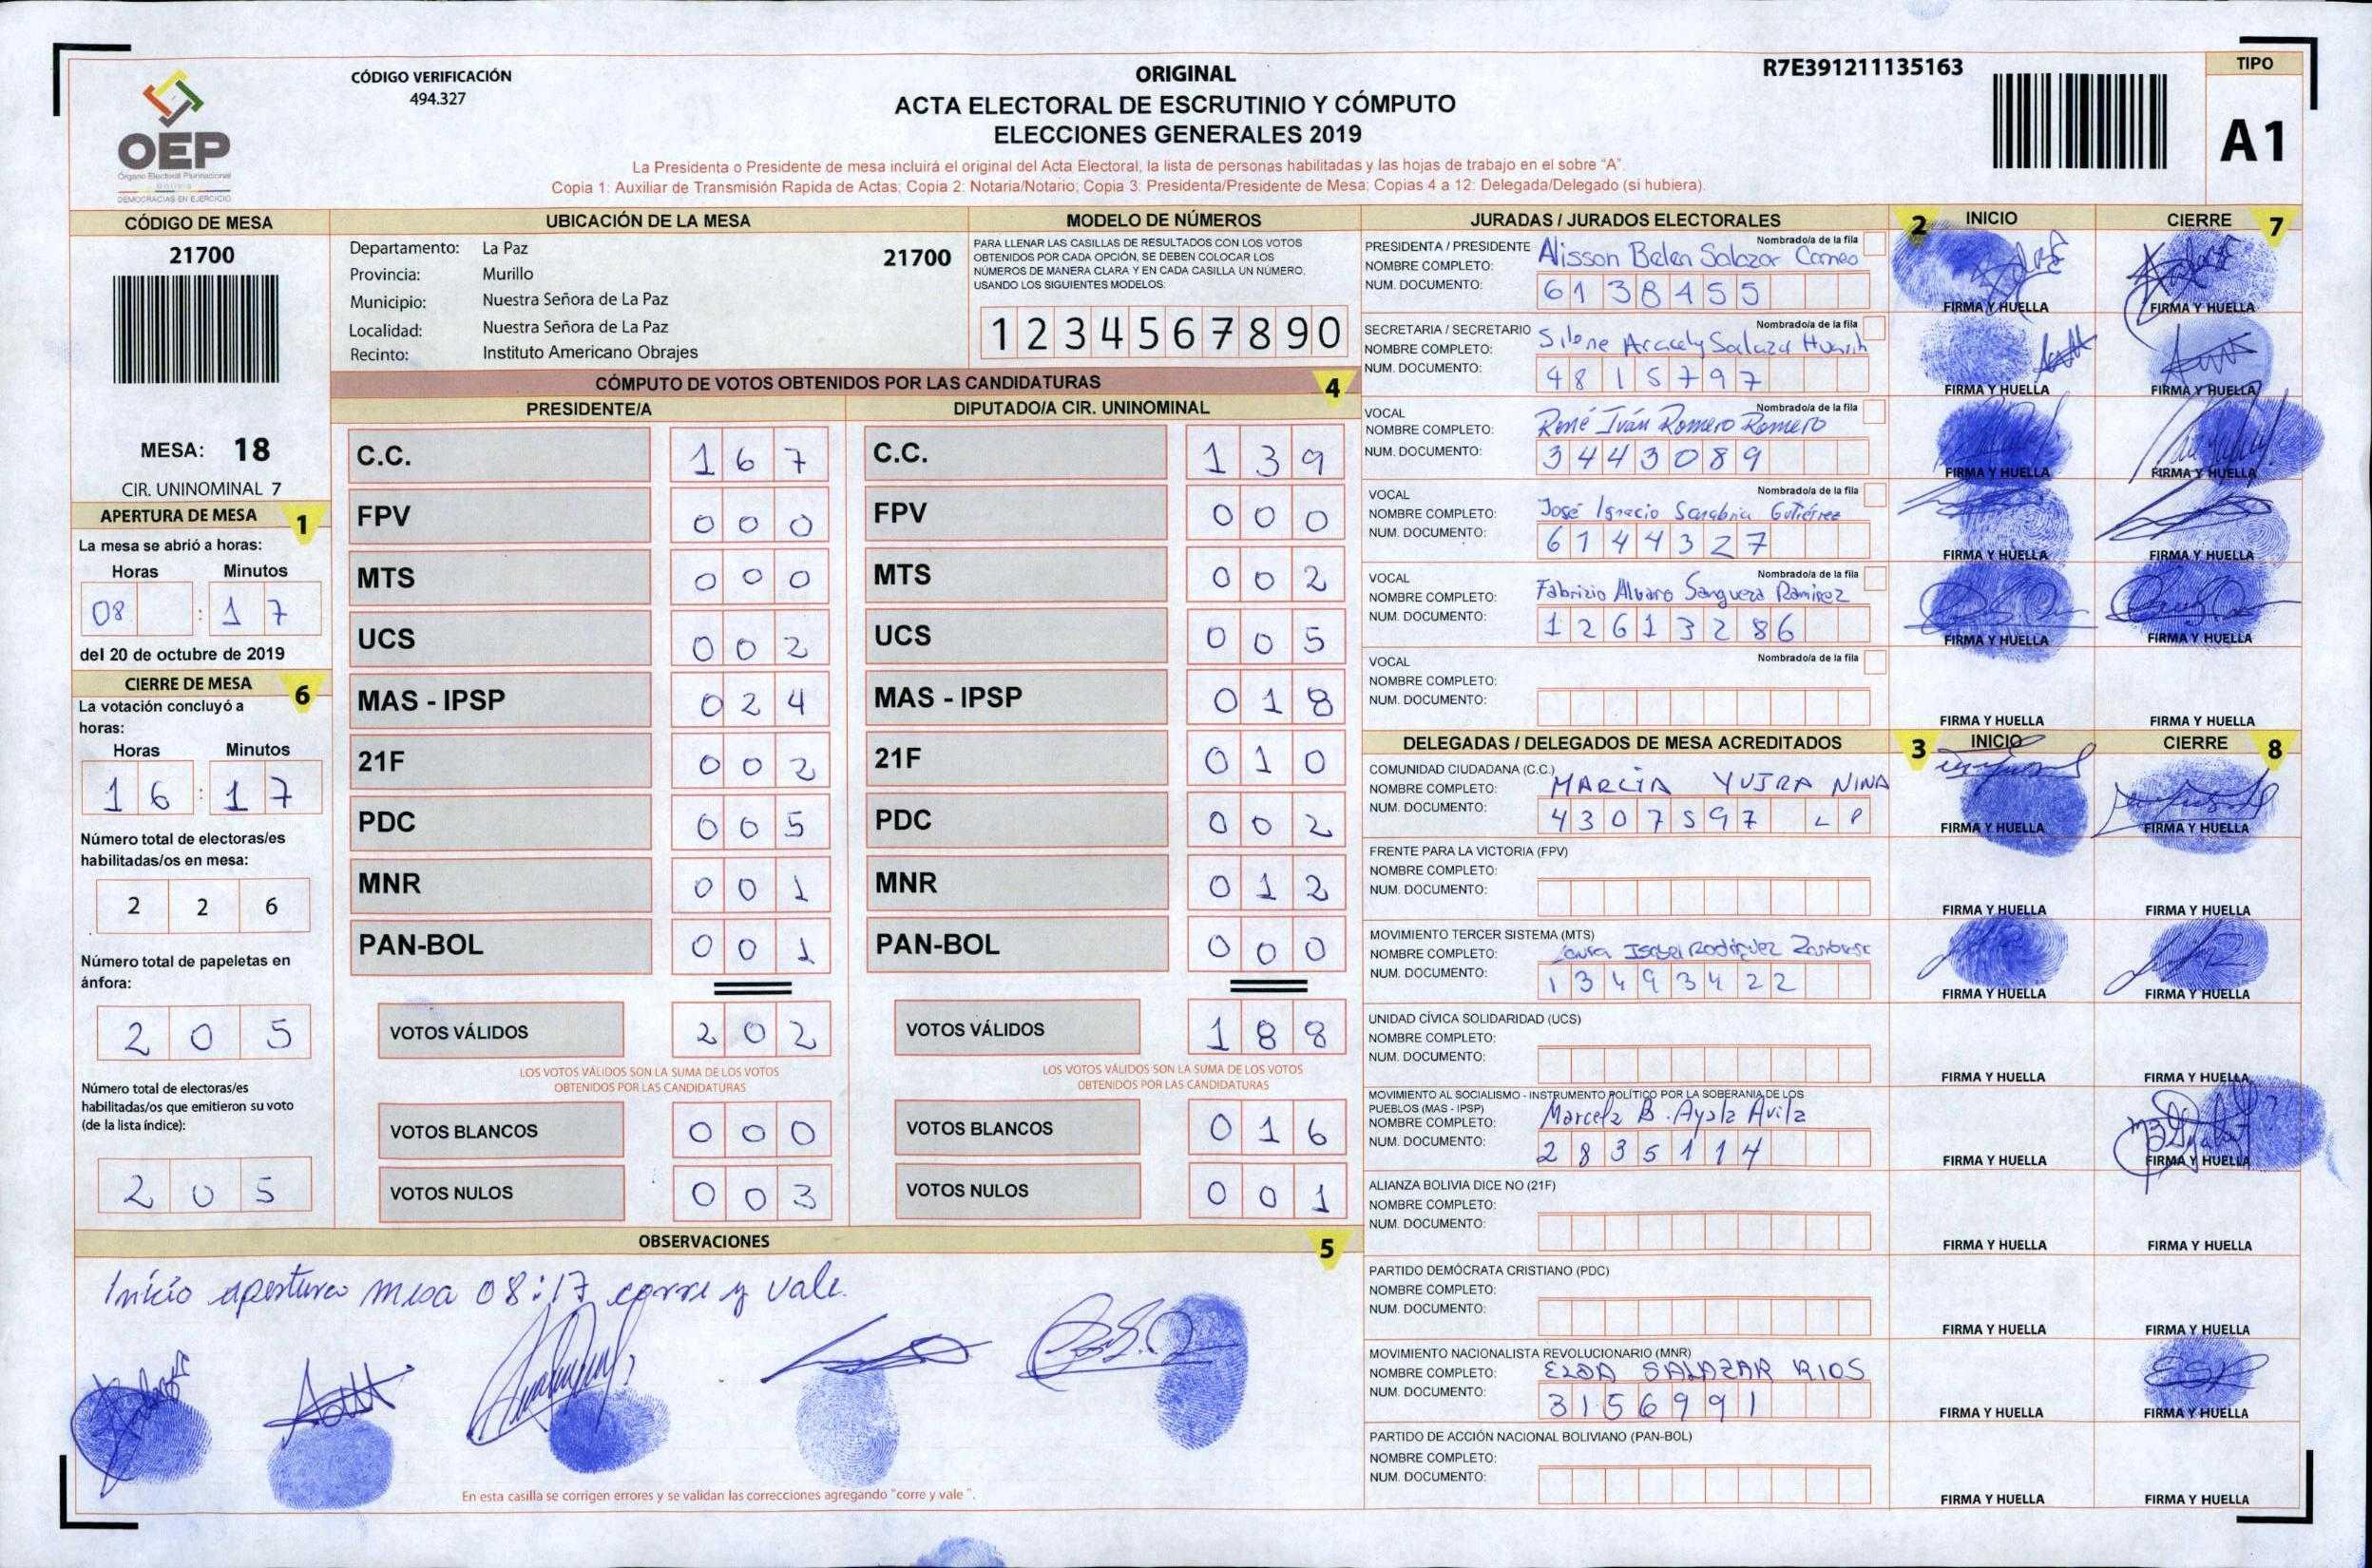 CÓDIGO VERIFICACIÓN
494.327
ORIGINAL
ACTA ELECTORAL DE ESCRUTINIO Y CÓMPUTO
ELECCIONES GENERALES 2019
R7E391211135163
TIPO
A1
OEP
Órgano Electoral Plurinacional
BOLIVIA
DEMOCRACIAS EN EJERCICIO
La Presidenta o Presidente de mesa incluirá el original del Acta Electoral, la lista de personas habilitadas y las hojas de trabajo en el sobre "A".
Copia 1: Auxiliar de Transmisión Rapida de Actas; Copia 2: Notaria/Notario; Copia 3: Presidenta/Presidente de Mesa; Copias 4 a 12: Delegada/Delegado (si hubiera).
CÓDIGO DE MESA
21700
MESA: 18
CIR. UNINOMINAL 7
APERTURA DE MESA 1
La mesa se abrió a horas:
Horas Minutos
08 : 17
del 20 de octubre de 2019
CIERRE DE MESA 6
La votación concluyó a
horas:
Horas Minutos
16 : 17
Número total de electoras/es
habilitadas/os en mesa:
2 2 6
Número total de papeletas en
ánfora:
2 0 5
Número total de electoras/es
habilitadas/os que emitieron su voto
(de la lista índice):
2 0 5
UBICACIÓN DE LA MESA
Departamento: La Paz 21700
Provincia: Murillo
Municipio: Nuestra Señora de La Paz
Localidad: Nuestra Señora de La Paz
Recinto: Instituto Americano Obrajes
MODELO DE NÚMEROS
PARA LLENAR LAS CASILLAS DE RESULTADOS CON LOS VOTOS
OBTENIDOS POR CADA OPCIÓN, SE DEBEN COLOCAR LOS
NÚMEROS DE MANERA CLARA Y EN CADA CASILLA UN NÚMERO,
USANDO LOS SIGUIENTES MODELOS:
1 2 3 4 5 6 7 8 9 0
CÓMPUTO DE VOTOS OBTENIDOS POR LAS CANDIDATURAS 4
PRESIDENTE/A DIPUTADO/A CIR. UNINOMINAL
C.C. 1 6 7 C.C. 1 3 9
FPV 0 0 0 FPV 0 0 0
MTS 0 0 0 MTS 0 0 2
UCS 0 0 2 UCS 0 0 5
MAS - IPSP 0 2 4 MAS - IPSP 0 1 8
21F 0 0 2 21F 0 1 0
PDC 0 0 5 PDC 0 0 2
MNR 0 0 1 MNR 0 1 2
PAN-BOL 0 0 1 PAN-BOL 0 0 0
VOTOS VÁLIDOS 2 0 2 VOTOS VÁLIDOS 1 8 8
LOS VOTOS VÁLIDOS SON LA SUMA DE LOS VOTOS LOS VOTOS VÁLIDOS SON LA SUMA DE LOS VOTOS
OBTENIDOS POR LAS CANDIDATURAS OBTENIDOS POR LAS CANDIDATURAS
VOTOS BLANCOS 0 0 0 VOTOS BLANCOS 0 1 6
VOTOS NULOS 0 0 3 VOTOS NULOS 0 0 1
OBSERVACIONES 5
Inicio apertura mesa 08:17 corre y vale.
En esta casilla se corrigen errores y se validan las correcciones agregando "corre y vale ".
JURADAS / JURADOS ELECTORALES 2 INICIO CIERRE 7
PRESIDENTA / PRESIDENTE Nombrado/a de la fila
NOMBRE COMPLETO: Alisson Belen Salazar
NUM. DOCUMENTO: 6138455
FIRMA Y HUELLA FIRMA Y HUELLA
SECRETARIA / SECRETARIO Nombrado/a de la fila
NOMBRE COMPLETO: Aracely Salazar
NUM. DOCUMENTO: 4815797
FIRMA Y HUELLA FIRMA Y HUELLA
VOCAL Nombrado/a de la fila
NOMBRE COMPLETO: René Iván Romero Romero
NUM. DOCUMENTO: 3443089
FIRMA Y HUELLA FIRMA Y HUELLA
VOCAL Nombrado/a de la fila
NOMBRE COMPLETO: José Ignacio Sanabria Gutiérrez
NUM. DOCUMENTO: 6144327
FIRMA Y HUELLA FIRMA Y HUELLA
VOCAL Nombrado/a de la fila
NOMBRE COMPLETO: Fabrizio Alvaro Sangueza Ramirez
NUM. DOCUMENTO: 12613286
FIRMA Y HUELLA FIRMA Y HUELLA
VOCAL Nombrado/a de la fila
NOMBRE COMPLETO:
NUM. DOCUMENTO:
FIRMA Y HUELLA FIRMA Y HUELLA
DELEGADAS / DELEGADOS DE MESA ACREDITADOS 3 INICIO CIERRE 8
COMUNIDAD CIUDADANA (C.C.)
NOMBRE COMPLETO: MARCIA YUJRA NINA
NUM. DOCUMENTO: 4307597 LP
FIRMA Y HUELLA FIRMA Y HUELLA
FRENTE PARA LA VICTORIA (FPV)
NOMBRE COMPLETO:
NUM. DOCUMENTO:
FIRMA Y HUELLA FIRMA Y HUELLA
MOVIMIENTO TERCER SISTEMA (MTS)
NOMBRE COMPLETO: Isabel Rodriguez
NUM. DOCUMENTO: 13493422
FIRMA Y HUELLA FIRMA Y HUELLA
UNIDAD CÍVICA SOLIDARIDAD (UCS)
NOMBRE COMPLETO:
NUM. DOCUMENTO:
FIRMA Y HUELLA FIRMA Y HUELLA
MOVIMIENTO AL SOCIALISMO - INSTRUMENTO POLÍTICO POR LA SOBERANIA DE LOS
PUEBLOS (MAS - IPSP)
NOMBRE COMPLETO: Marcela B. Ayala Avila
NUM. DOCUMENTO: 2835114
FIRMA Y HUELLA FIRMA Y HUELLA
ALIANZA BOLIVIA DICE NO (21F)
NOMBRE COMPLETO:
NUM. DOCUMENTO:
FIRMA Y HUELLA FIRMA Y HUELLA
PARTIDO DEMÓCRATA CRISTIANO (PDC)
NOMBRE COMPLETO:
NUM. DOCUMENTO:
FIRMA Y HUELLA FIRMA Y HUELLA
MOVIMIENTO NACIONALISTA REVOLUCIONARIO (MNR)
NOMBRE COMPLETO: ELDA SALAZAR RIOS
NUM. DOCUMENTO: 3156991
FIRMA Y HUELLA FIRMA Y HUELLA
PARTIDO DE ACCIÓN NACIONAL BOLIVIANO (PAN-BOL)
NOMBRE COMPLETO:
NUM. DOCUMENTO:
FIRMA Y HUELLA FIRMA Y HUELLA